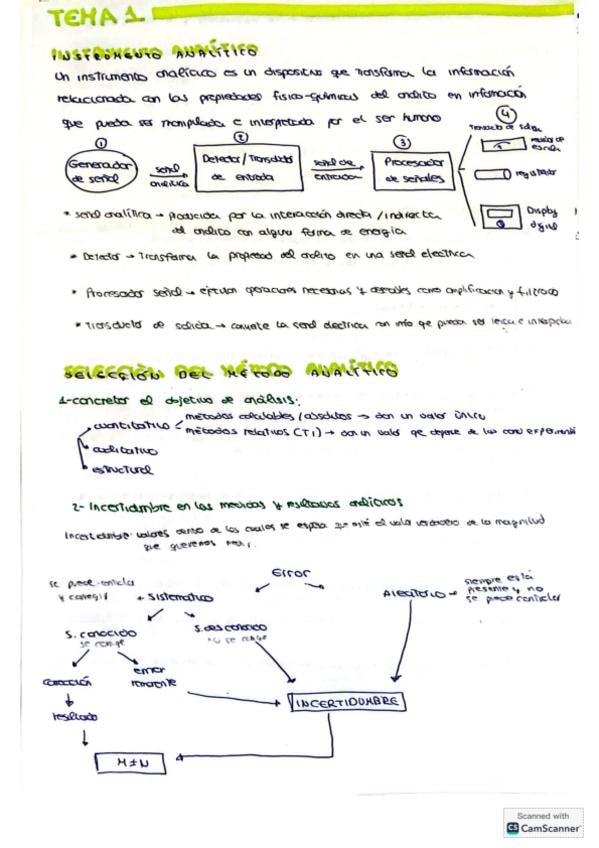 TEMA 1
INSTRUMENTO ANALÍTICO
Un instrumento analítico es un dispositivo que transforma la información
relacionada con las propiedades fisico-químicas del analito en información
que pueda ser manipulada e interpretada por el ser humano
① ② ③ ④
Generador de señal
señal analítica
Detector / Transductor de entrada
señal de entrada
Procesador de señales
registrador
Display digital
* señal analítica → Producida por la interacción directa / indirecta
del analito con alguna forma de energía
* Detector → Transforma la propiedad del analito en una señal electrica
* Procesador señal → ejecutan operaciones necesarias como amplificacion y filtrado
* Transductor de salida → convierte la señal electrica con info que pueda ser leida e interpretada
SELECCIÓN DEL MÉTODO ANALÍTICO
1-concretar el objetivo de análisis:
métodos calculables / absolutos → dan un valor único
cuantitativo = métodos relativos (T1) → dan un valor que depende de las cond experimentales
cualitativo
estructural
2- Incertidumbre en las medidas y resultados analíticos
Incertidumbre: valores dentro de los cuales se espera que esté el valor verdadero de la magnitud
que queremos medir.
Error
se puede
y corregir
Sistemático
Aleatorio
siempre está
presente y no
se puede controlar
S. conocido
se corrige
S. desconocido
no se corrige
corrección
error
remanente
resultado
INCERTIDUMBRE
Scanned with
CS CamScanner